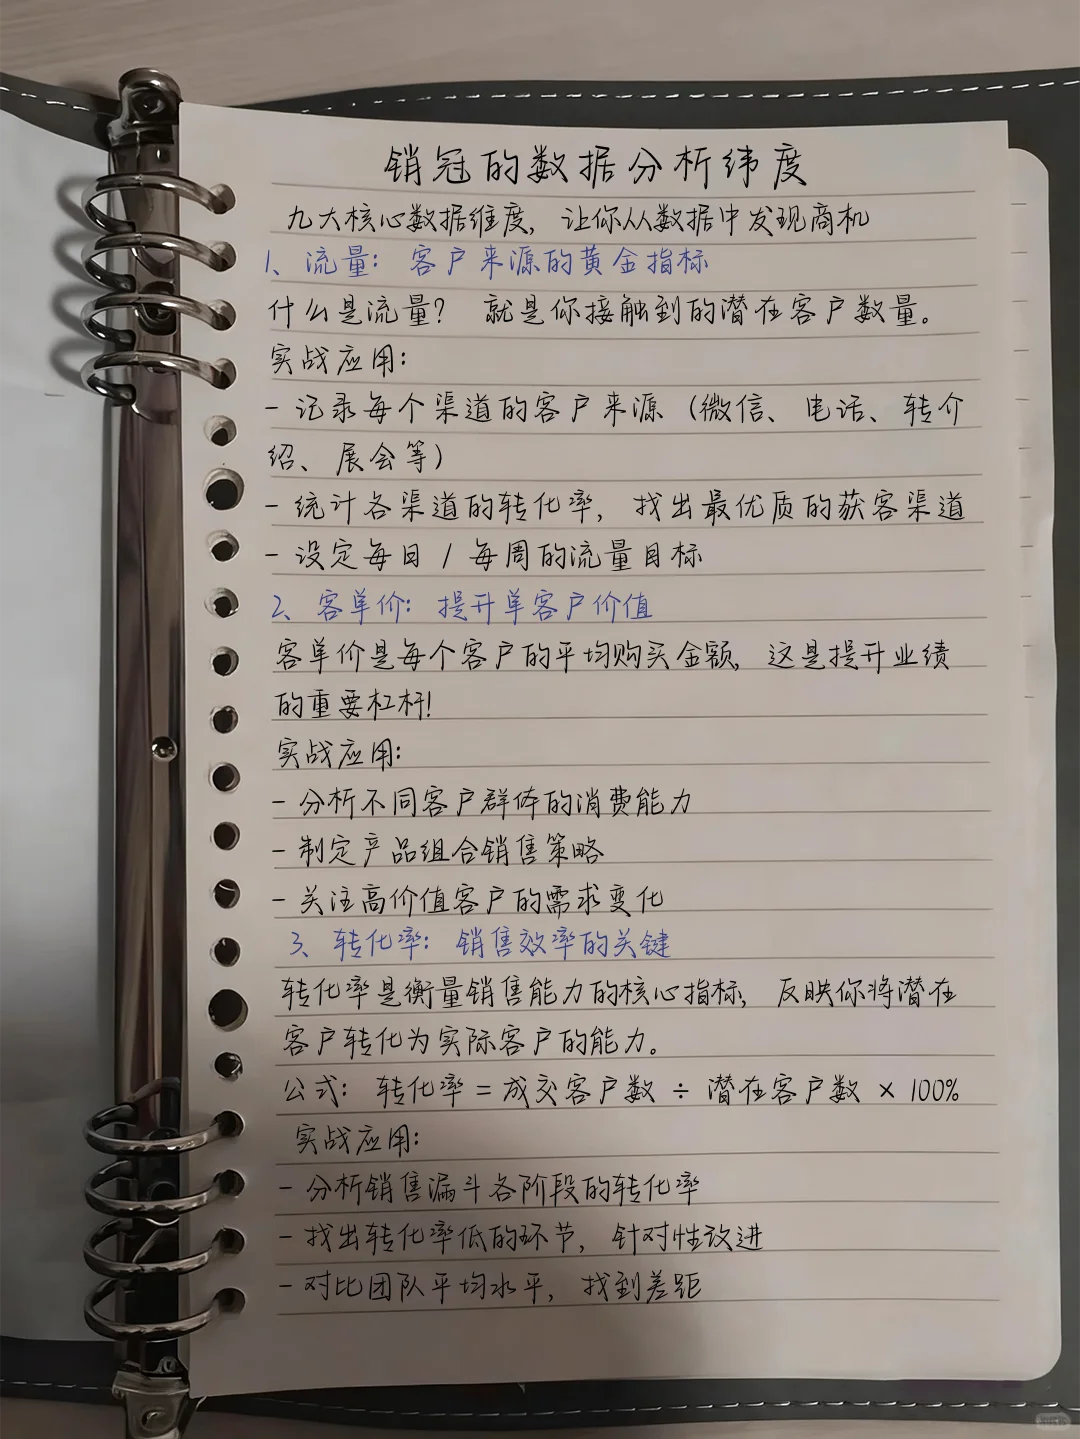 销冠的数据分析纬度
九大核心数据维度，让你从数据中发现商机
1、流量：客户来源的黄金指标
什么是流量？ 就是你接触到的潜在客户数量。
实战应用：
- 记录每个渠道的客户来源（微信、电话、转介
绍、展会等）
- 统计各渠道的转化率，找出最优质的获客渠道
- 设定每日 / 每周的流量目标
2、客单价：提升单客户价值
客单价是每个客户的平均购买金额，这是提升业绩
的重要杠杆！
实战应用：
- 分析不同客户群体的消费能力
- 制定产品组合销售策略
- 关注高价值客户的需求变化
3、转化率：销售效率的关键
转化率是衡量销售能力的核心指标，反映你将潜在
客户转化为实际客户的能力。
公式：转化率 = 成交客户数 ÷ 潜在客户数 × 100%
实战应用：
- 分析销售漏斗各阶段的转化率
- 找出转化率低的环节，针对性改进
- 对比团队平均水平，找到差距